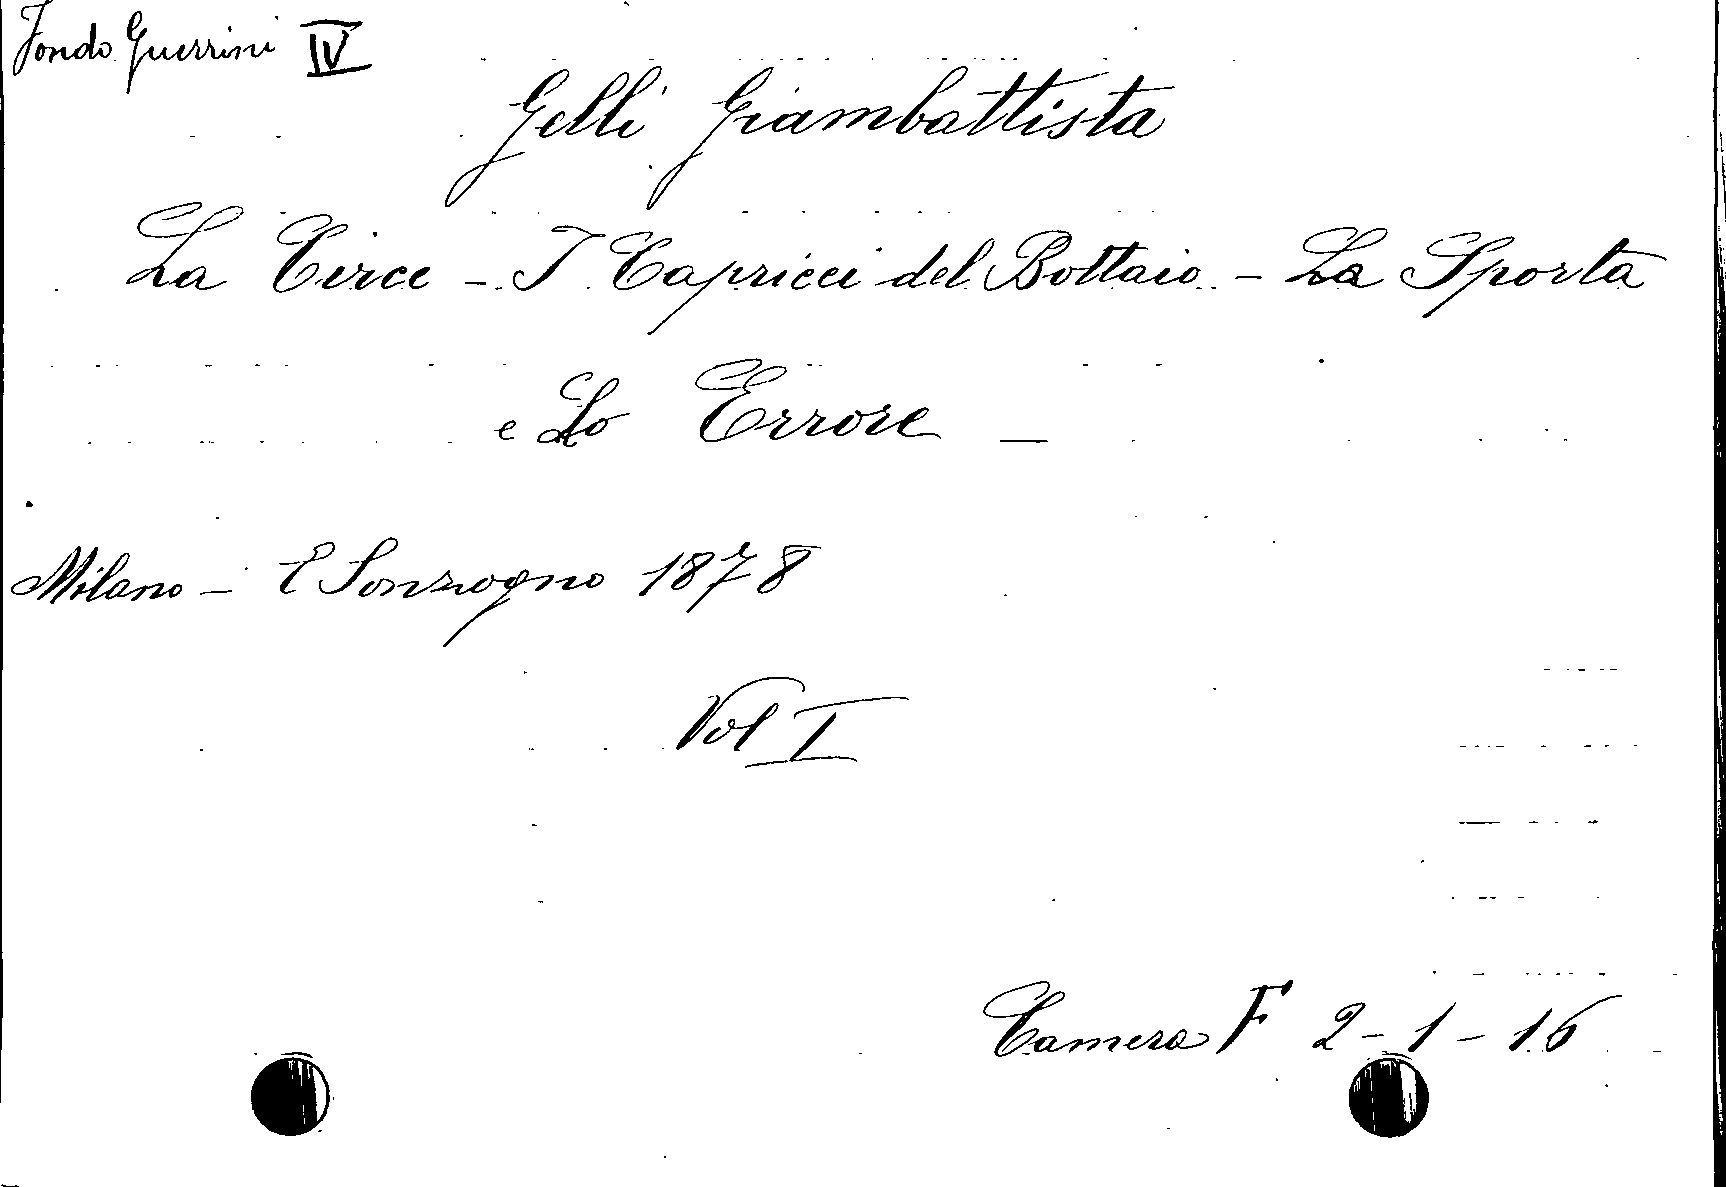 Fondo Guerrini IV
Gelli Giambattista
La Circe - I Capricci del Bottaio - La Sporta
e Lo Errore -
Milano - E Sonzogno 1878
Vol I
Camera F 2-1-16